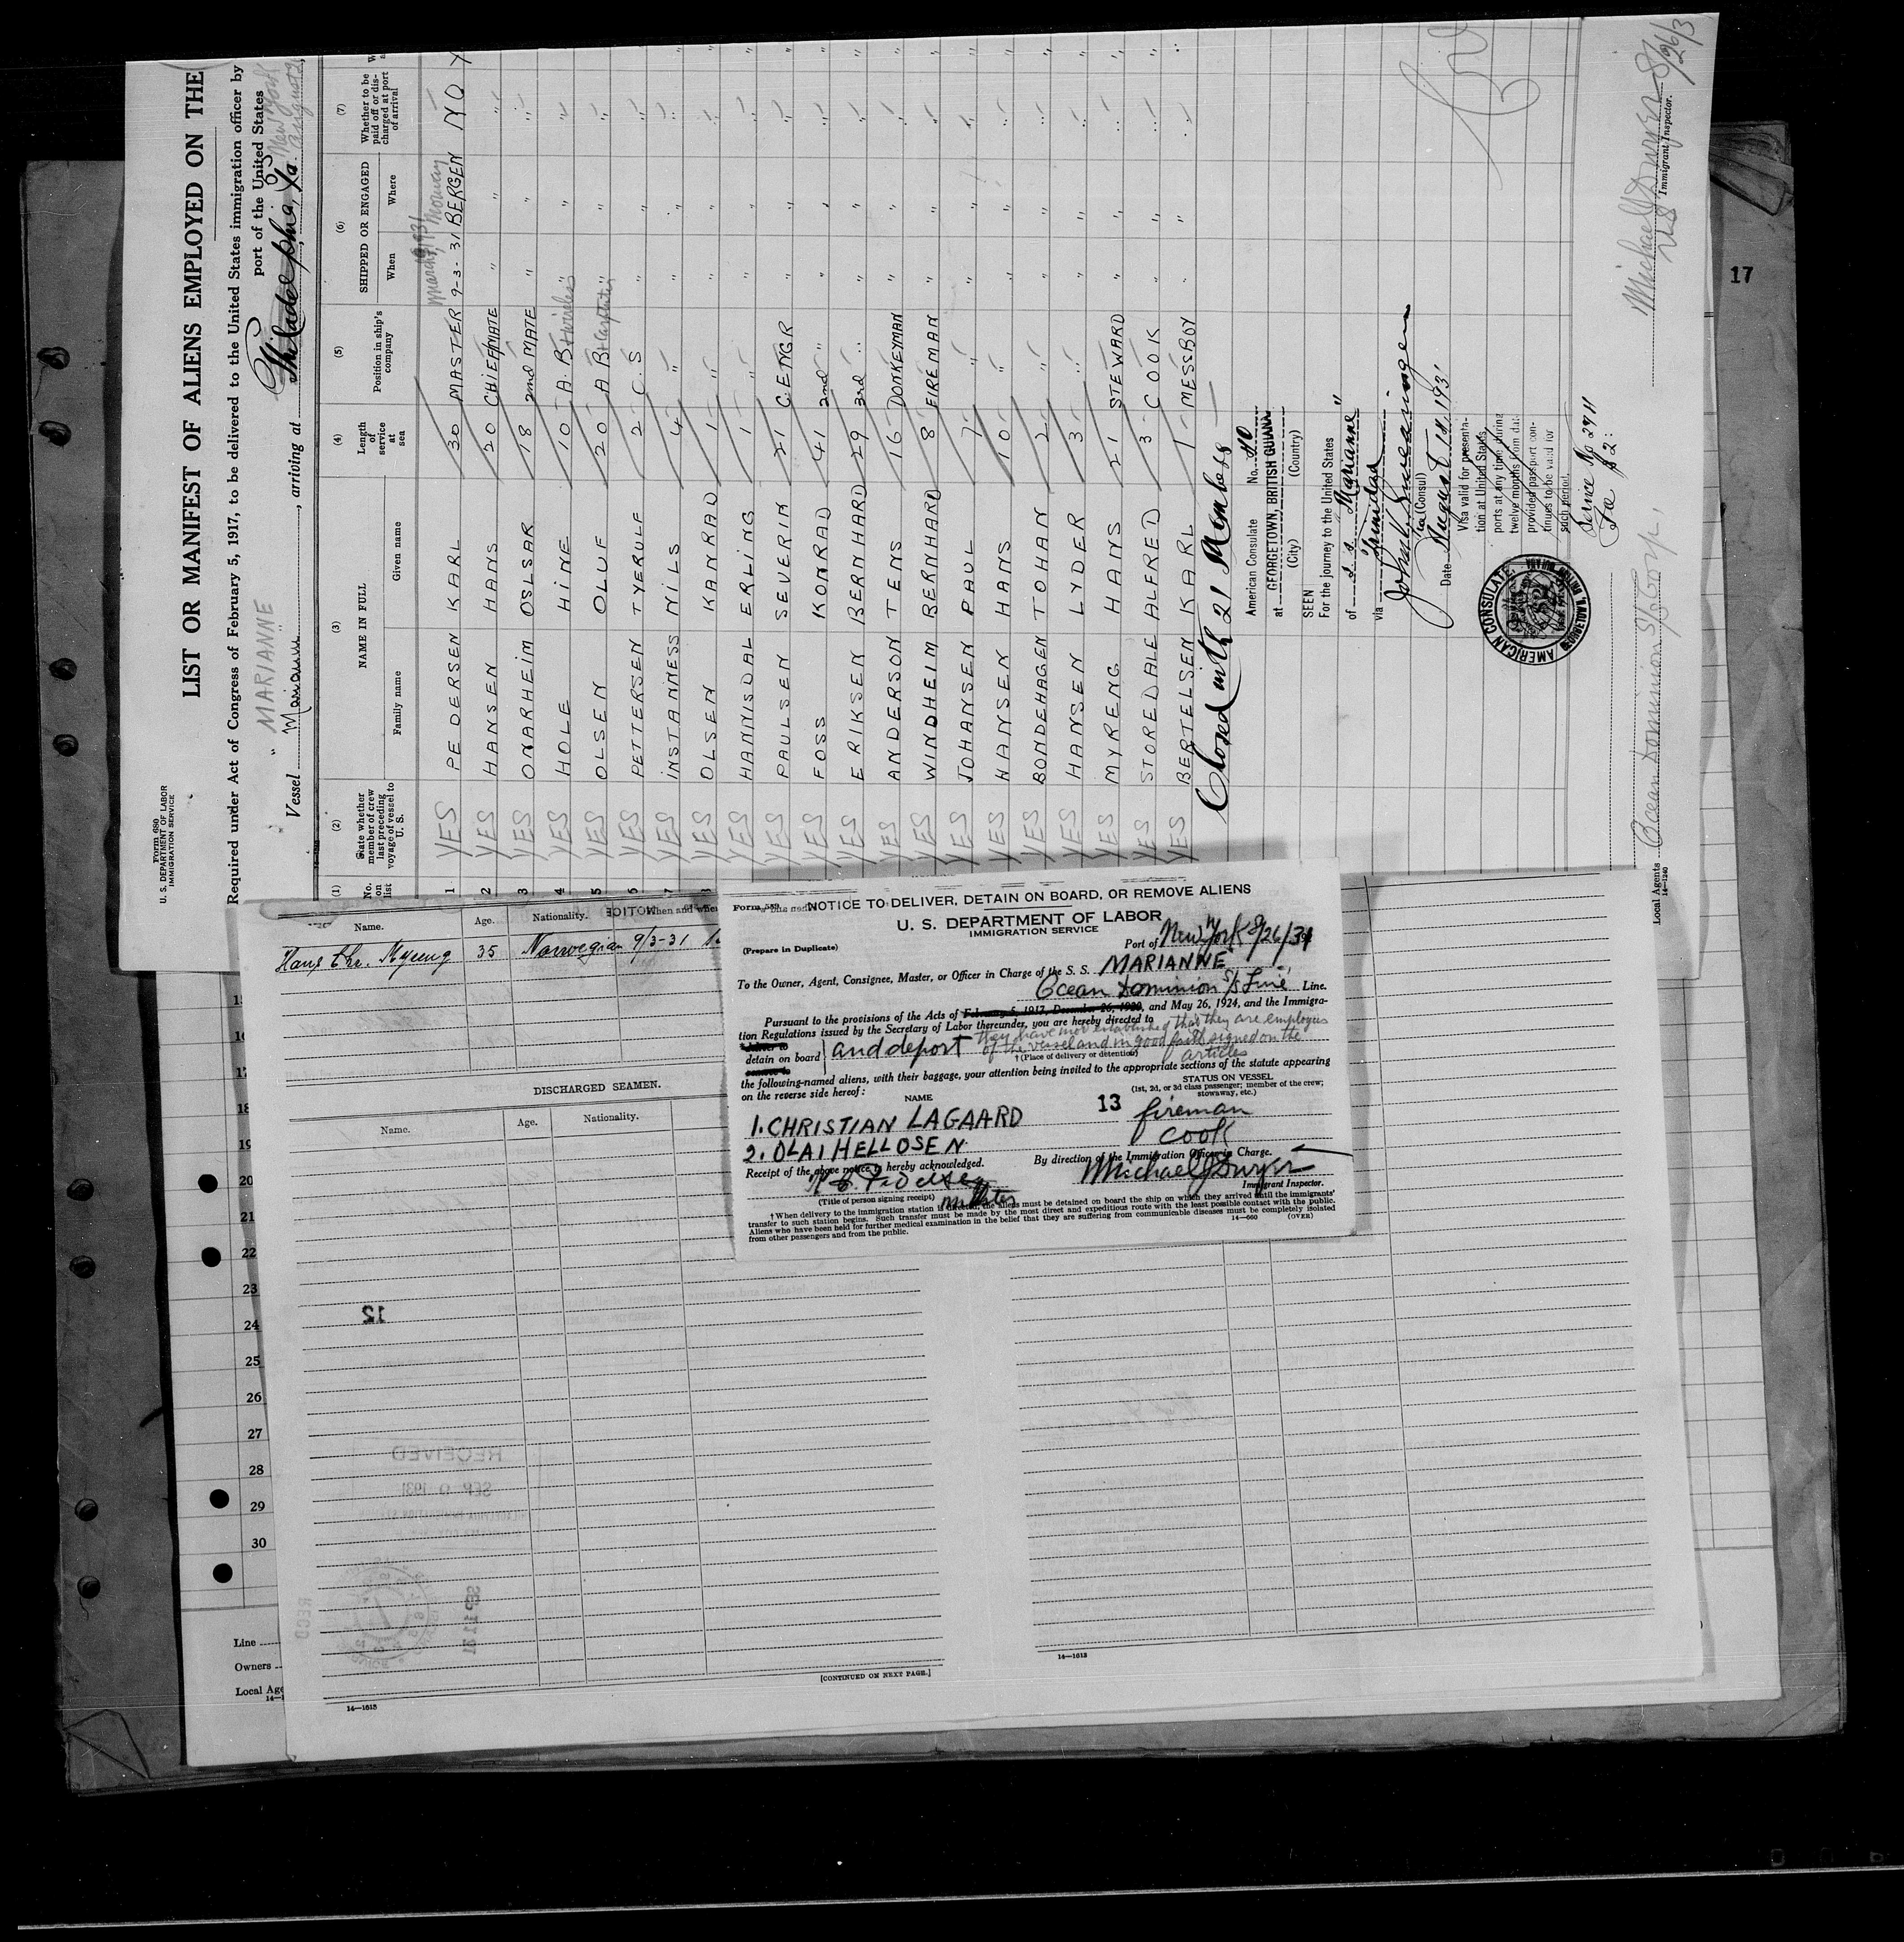 Form 680
U. S. DEPARTMENT OF LABOR
IMMIGRATION SERVICE
LIST OR MANIFEST OF ALIENS EMPLOYED ON THE
Required under Act of Congress of February 5, 1917, to be delivered to the United States immigration officer by
port of the United States
"MARIANNE"
New York
Vessel Marianne, arriving at Philadelphia, Pa. August
(1) (2) (3) (4) (5) (6) (7)
No. on list
State whether member of crew last preceding voyage of vessel to U. S.
NAME IN FULL
Family name Given name
Length of service at sea
Position in ship's company
SHIPPED OR ENGAGED
When Where
Whether to be paid off or discharged at port of arrival
March 9, 1931 Norway
1 YES PEDERSEN KARL 30 MASTER 9-3-31 BERGEN NO
2 YES HANSEN HANS 20 CHIEF MATE " " "
3 YES ONARHEIM OSLSAR 18 2nd MATE " " "
4 YES HOLE HINE 10 A.B + wireless " " "
5 YES OLSEN OLUF 20 A B + Carpenter " " "
6 YES PETTERSEN TYERULF 2 C.S " " "
7 YES INSTANNESS NILS 4 " " " "
8 YES OLSEN KANRAD 1 " " " "
YES HANNISDAL ERLING 1 " " " "
YES PAULSEN SEVERIN 21 C.ENGR " " "
YES FOSS KONRAD 41 2nd " " " "
YES ERIKSEN BERNHARD 29 3rd " " " "
YES ANDERSON TENS 16 DONKEYMAN " " "
YES WINDHEIM BERNHARD 8 FIREMAN " " "
YES JOHANSEN PAUL 7 " " " "
YES HANSEN HANS 10 " " " "
YES BONDEHAGEN TOHAN 2 " " " "
YES HANSEN LYDER 3 " " " "
YES MYRENG HANS 21 STEWARD " " "
YES STOREDALE ALFRED 3 COOK " " "
YES BERTELSEN KARL 1 MESSBOY " " "
Closed with 21 Members
American Consulate No. 110
at GEORGETOWN, BRITISH GUIANA
(City) (Country)
SEEN
For the journey to the United States
of s.s. "Marianne"
via Trinidad
(Consul)
Date August 14, 1931
Visa valid for presenta-
tion at United States
ports at any time during
twelve months from date
provided passport con-
tinues to be valid for
such period.
AMERICAN CONSULATE
Service No 2911
Fee $2:
Local Agents Ocean Dominion S/S Corp.
14—1240
Michael J Dwyer 8/26/31
Immigrant Inspector.
17
Name. Age. Nationality. When and where
Hans Chr. Myreng 35 Norwegian 9/3-31
DISCHARGED SEAMEN.
Name. Age. Nationality.
12
RECEIVED
SEP 1931
SEP 11 31
REC'D
[CONTINUED ON NEXT PAGE.]
14—1613
14—1613
17
18
19
20
21
22
23
24
25
26
27
28
29
30
Line
Owners
Local Age
Form 559
NOTICE TO DELIVER, DETAIN ON BOARD, OR REMOVE ALIENS
U. S. DEPARTMENT OF LABOR
IMMIGRATION SERVICE
(Prepare in Duplicate)
Port of New York 8/26/31
To the Owner, Agent, Consignee, Master, or Officer in Charge of the S. S. MARIANNE
Ocean Dominion S/S Line Line.
Pursuant to the provisions of the Acts of February 5, 1917, December 26, 1920, and May 26, 1924, and the Immigra-
tion Regulations issued by the Secretary of Labor thereunder, you are hereby directed to
deliver to
detain on board and deport they have not established that they are employees
of the vessel and in good faith signed on the
articles
remove to
†(Place of delivery or detention)
the following-named aliens, with their baggage, your attention being invited to the appropriate sections of the statute appearing
on the reverse side hereof:
NAME
STATUS ON VESSEL
(1st, 2d, or 3d class passenger; member of the crew;
stowaway, etc.)
13
1. CHRISTIAN LAGAARD fireman
2. OLAI HELLOSEN cook
Receipt of the above notice is hereby acknowledged.
By direction of the Immigration Officer in Charge.
Michael J Dwyer
Immigrant Inspector.
(Title of person signing receipt) Master
†When delivery to the immigration station is directed, the aliens must be detained on board the ship on which they arrived until the immigrants'
transfer to such station begins. Such transfer must be made by the most direct and expeditious route with the least possible contact with the public.
Aliens who have been held for further medical examination in the belief that they are suffering from communicable diseases must be completely isolated
from other passengers and from the public.
14—660 (OVER)